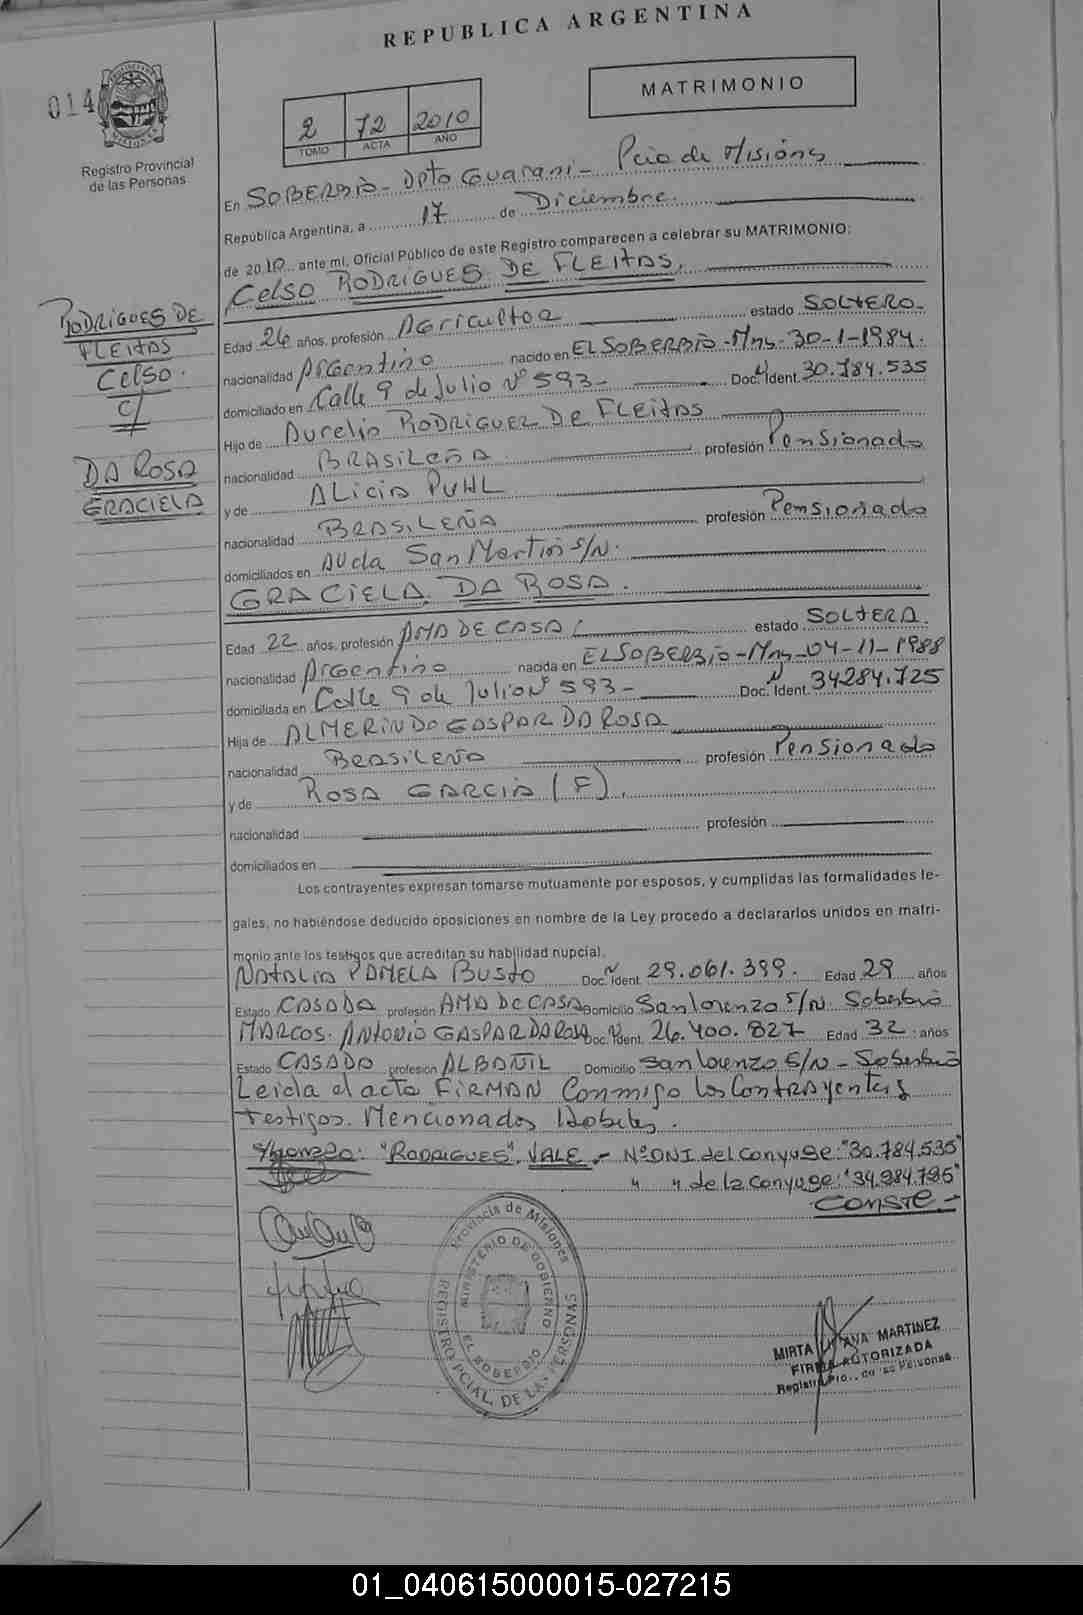 REPUBLICA ARGENTINA
014
Registro Provincial
de las Personas
2 72 2010
TOMO ACTA AÑO
MATRIMONIO
En SOBERBIO - Dpto Guarani - Pcia de Misiónes
República Argentina, a 17 de Diciembre.
de 2010 ante mi, Oficial Público de este Registro comparecen a celebrar su MATRIMONIO:
Celso RODRIGUES DE FLEITAS,
RODRIGUES DE
FLEITAS
Celso.
c/
DA ROSA
GRACIELA
Edad 26 años, profesión Agricultor estado SOLTERO.
nacionalidad Argentino nacido en EL SOBERBIO - Mns - 30-1-1984.
domiciliado en Calle 9 de Julio Nº 593 - Doc. Ident. Nº 30.784.535
Hijo de Aurelio RODRIGUEZ De FLEITAS
nacionalidad BRASILEÑA profesión Pensionado
y de ALICIA PUHL
nacionalidad BRASILEÑA profesión Pensionado
domiciliados en AVda San Martin S/N.
GRACIELA DA ROSA.
Edad 22 años, profesión AMA DE CASA estado SOLTERA.
nacionalidad Argentino nacida en EL SOBERBIO - Mns - 04-11-1988
domiciliada en Calle 9 de Julio Nº 593 - Doc. Ident. Nº 34284.725
Hija de ALMERINDO GASPAR DA ROSA
nacionalidad BRASILEÑA profesión Pensionado
y de ROSA GARCIA (F).
nacionalidad profesión
domiciliados en
Los contrayentes expresan tomarse mutuamente por esposos, y cumplidas las formalidades le-
gales, no habiéndose deducido oposiciones en nombre de la Ley procedo a declararlos unidos en matri-
monio ante los testigos que acreditan su habilidad nupcial.
NATALIA PAMELA BUSTO Doc. Ident. Nº 29.061.399. Edad 29 años
Estado CASADA profesión AMA De CASA Domicilio San lorenzo S/N. Soberbio
MARCOS ANTONIO GASPAR DA ROSA Doc. Ident. Nº 26.400.827 Edad 32 años
Estado CASADO profesión ALBAÑIL Domicilio San lorenzo S/N - Soberbio
Leida el acta FIRMAN Conmigo los Contrayentes y
Testigos Mencionados Habiles.
"RODRIGUES". VALE - Nº DNI del conyuge: "30.784.535"
" " de la conyuge: "34.284.725"
CONSTE -
Provincia de Misiones
MINISTERIO DE GOBIERNO
EL SOBERBIO
REGISTRO PCIAL. DE LAS PERSONAS
MIRTA MARTINEZ
FIRMA AUTORIZADA
Registro Pro. de las Personas
01_040615000015-027215